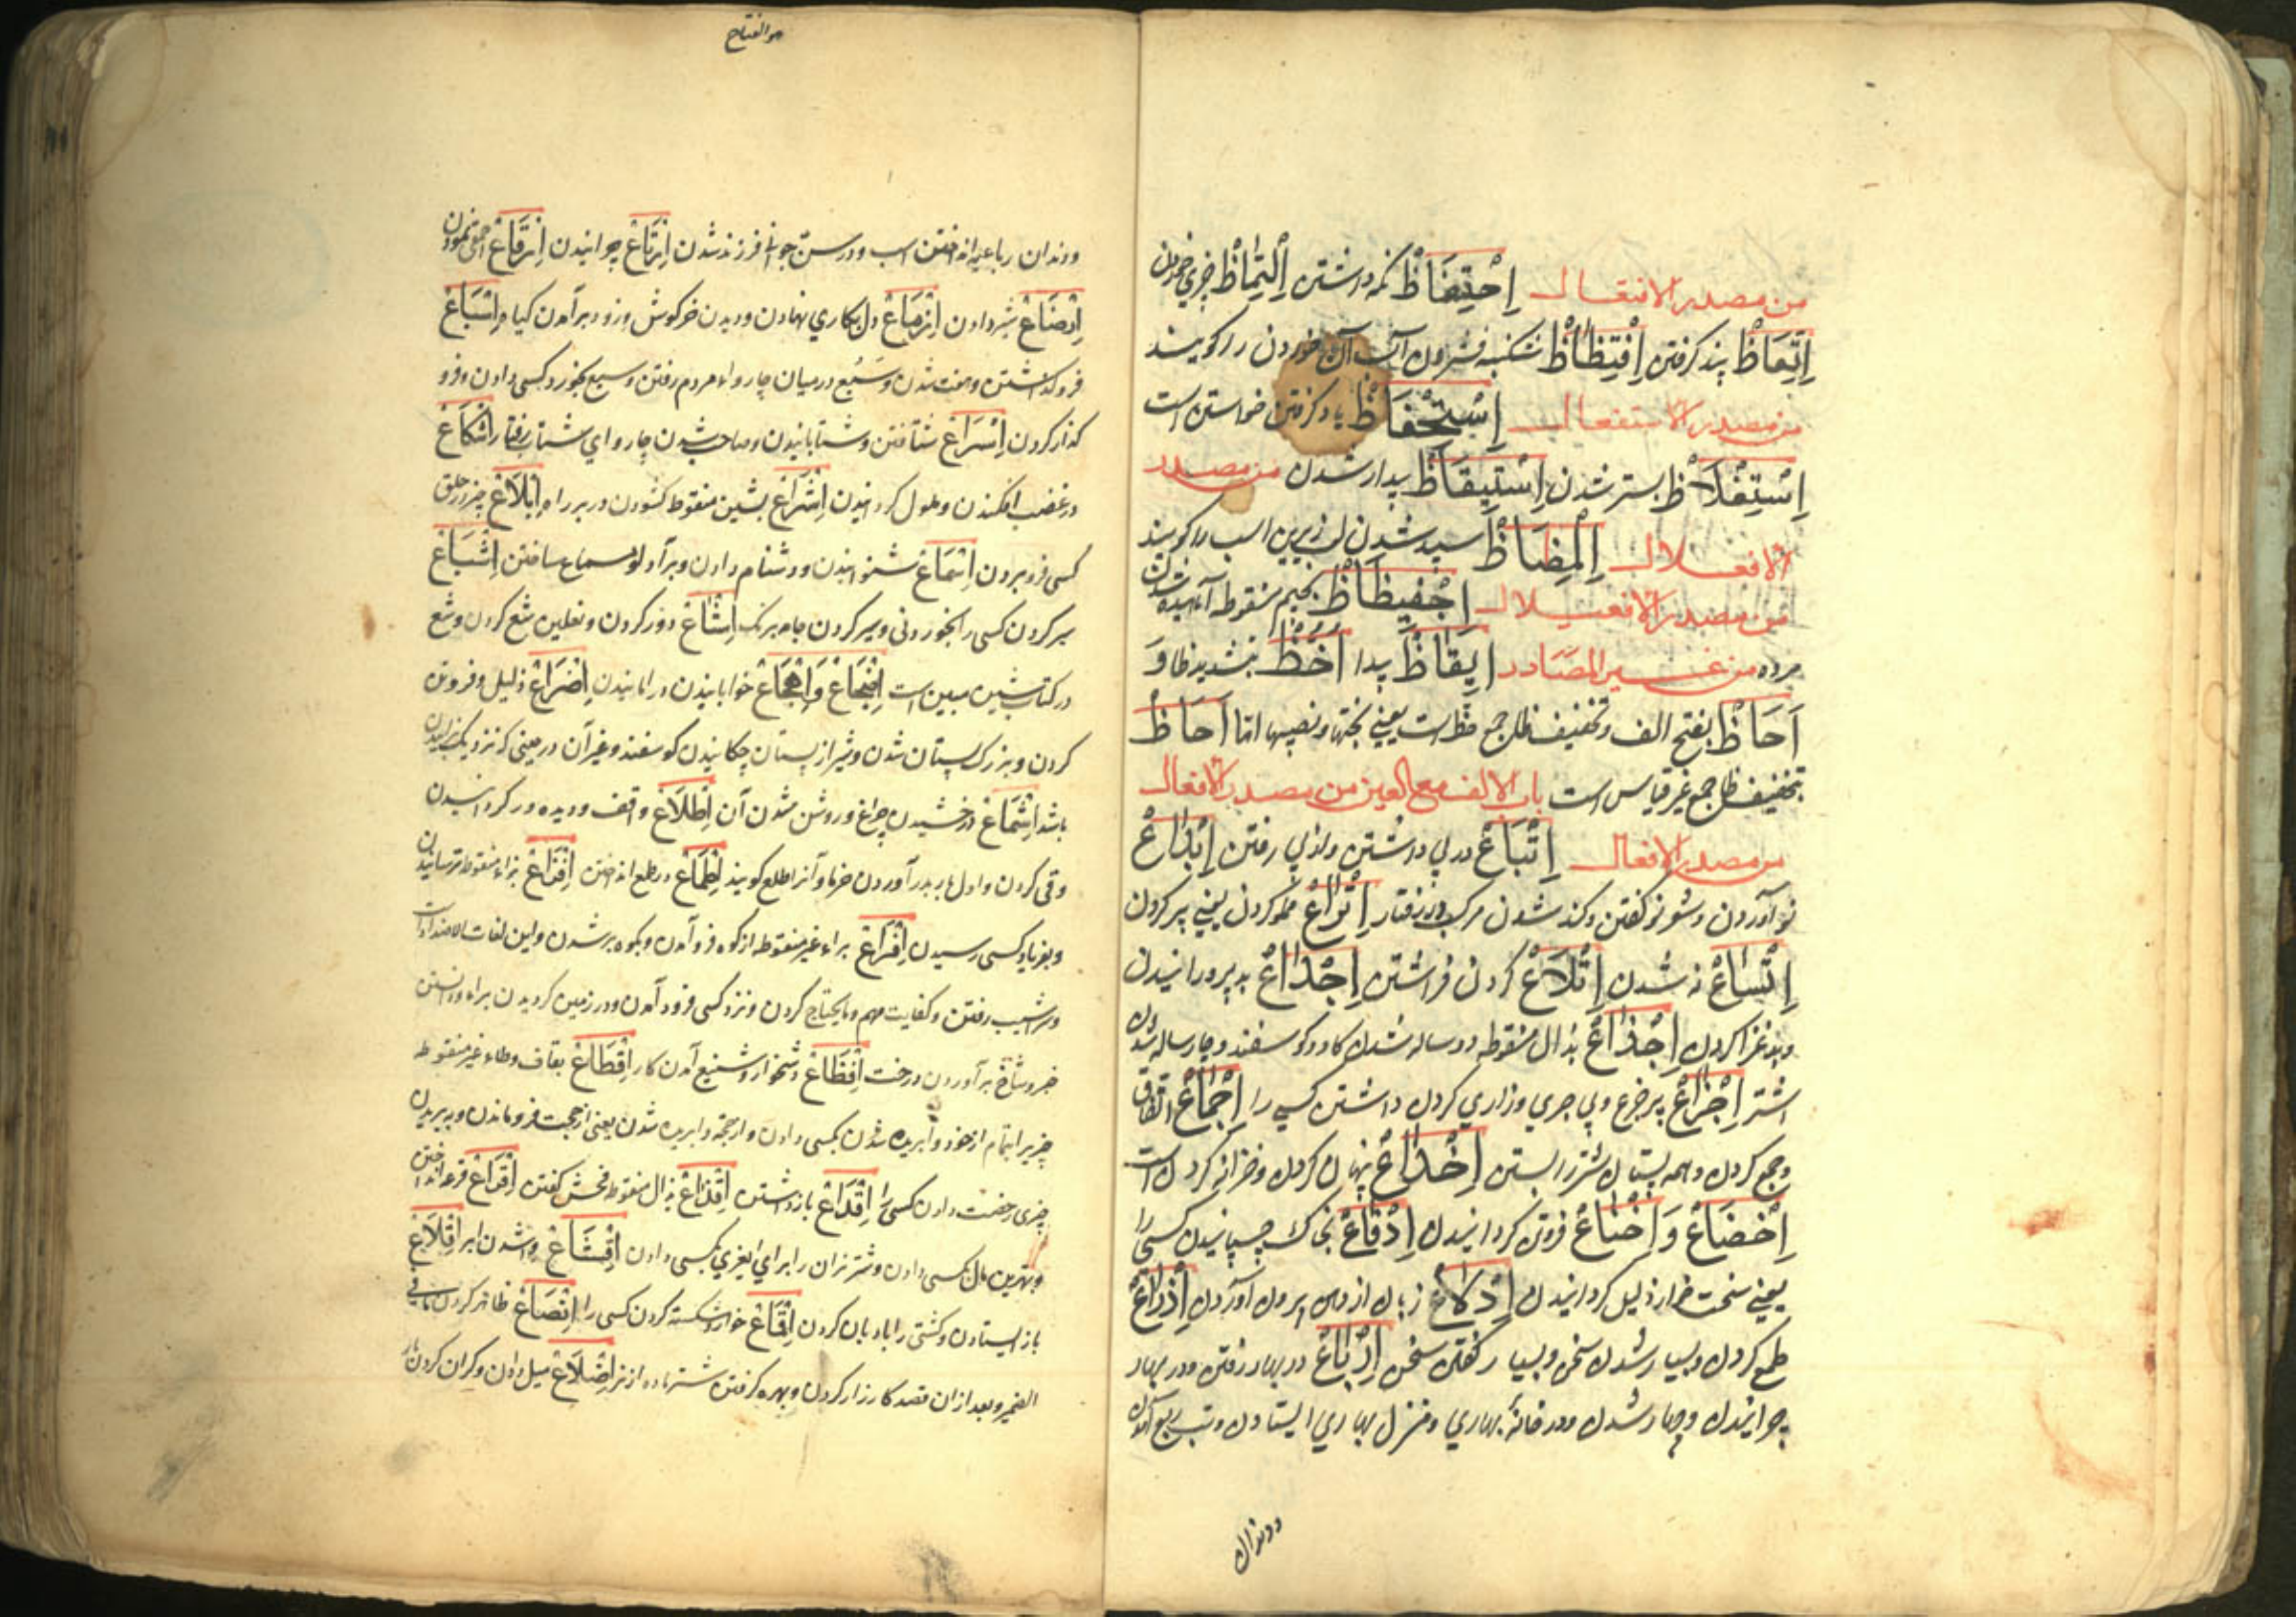 من مصدر الافتعال اِحْتِفَاظْ نگه داشتن اِلْتِمَاظْ چیزی خوردن
اِتِّعَاظْ پند گرفتن اِفْتِظَاظْ شکنبه فشردن آب آن خوردن را گویند
من مصدر الاستفعال اِسْتِحْفَاظْ یاد گرفتن خواستن است
اِسْتِغْلَاظْ بستر شدن اِسْتِیقَاظْ بیدار شدن من مصدر
الافعلال اِلْمِضَاظْ سپید شدن لب زیرین اسب را گویند
من مصدر الافعیلال اِجْفِیظَاظْ بجیم منقوطه آماسیده شدن
مرده من غیر المصادر اَیْقَاظْ بیدا اَحُظّ بتشدید ظا وَ
اَحَاظْ بفتح الف و تخفیف ظا جمع حظ است یعنی بختها و نصیبها اما اَحَاظْ
بتخفیف ظا جمع غیر قیاس است باب الالف مع العین من مصدر الافعال
من مصدر الافعال اِتْبَاعْ در پی داشتن و از پی رفتن اِبْدَاعْ
نو آوردن و شعر نو گفتن و کند شدن مرکب در رفتار اِتْرَاعْ مملو کردن یعنی پر کردن
اِتْسَاعْ نه شدن اِتْلَاعْ گردن فراشتن اِجْدَاعْ بد پرورانیدن
و بد غذا کردن اِجْذَاعْ بذال منقوطه دو ساله شدن گاو و گوسفند و چار ساله شدن
اشتر اِجْزَاعْ پر جزع و بی جری و زاری کردن داشتن کسی را اِجْمَاعْ اتفاق
و جمع کردن و همه پستان شتر را بستن اِخْدَاعْ پنهان کردن و خزانه کردن است
اِخْضَاعْ وَ اِخْنَاعْ فروتن گردانیدن اِدْقَاعْ بخاک چسپانیدن کسی را
یعنی سخت خوار ذلیل گردانیدن اِدْلَاعْ زبان از دهن بیرون آوردن اِذْرَاعْ
طمع کردن و بسیار شدن سخن و بسیار گفتن سخن اِرْبَاعْ در بهار رفتن و در بهار
چرانیدن و چهار شدن و در خانهٔ بهاری و منزل بهاری ایستادن و تب ربع آمدن
و دندان
هو الفتاح
و دندان رباعیه انداختن اسب و در سن جوانی فرزند شدن اِرْتَاعْ چرانیدن اِرْقَاعْ احمقی نمودن
اِرْضَاعْ شیر دادن اِزْمَاعْ دل بکاری نهادن و دویدن خرگوش و زود برآمدن گیاه اِسْبَاعْ
فرو گذاشتن و هفت شدن و سَبُع در میان چاروا و مردم رفتن و سبع بخورد کسی دادن و فرو
گذار کردن اِسْرَاعْ شتافتن و شتابانیدن و صاحب شدن چاروای شتاب رفتار اِشْکَاعْ
در غضب افکندن و ملول گردانیدن اِشْرَاعْ بشین منقوطه گشودن در بر راه اِبْلَاعْ چیز در حلق
کسی فرو بردن اِسْمَاعْ شنوانیدن و دشنام دادن و برای دلو سماع ساختن اِشْبَاعْ
سیر کردن کسی را بخوردنی و سیر کردن جامه برنگ اِشْسَاعْ دور کردن و نعلین شع کردن و شع
در کتاب شین مبین است اِضْجَاعْ وَ اِهْجَاعْ خوابانیدن و رامانیدن اِضْرَاعْ ذلیل و فروتن
کردن و بزرگ پستان شدن و شیر از پستان چکانیدن گوسفند و غیر آن در حینی که نزدیک بزائیدن
باشد اِشْمَاعْ درخشیدن چراغ و روشن شدن آن اِطْلَاعْ واقف و دیده ور گردانیدن
و قی کردن و اول بار بدر آوردن خرما و آنرا طلع گویند اِطْمَاعْ در طمع انداختن اِفْزَاعْ بزاء منقوطه ترسانیدن
و بفریاد کسی رسیدن اِفْرَاعْ براء غیر منقوطه از کوه فرو آمدن و بکوه بر شدن و این لغات الاضداد است
و سراشیب رفتن و کفایت مهم و مایحتاج کردن و نزد کسی فرود آمدن و در زمین گردیدن براه دانستن
خبر و شاخ برآوردن درخت اِفْظَاعْ دشخوار و شنیع آمدن کار اِقْطَاعْ بقاف و طاء غیر منقوطه
چیز بر اتمام از خود وابریده شدن بکسی دادن و از حجة وابریده شدن یعنی از حجت فرو ماندن و به بریدن
چیزی رخصت دادن کسی را اِقْدَاعْ باز داشتن اِقْذَاعْ بذال منقوطه فحش گفتن اِقْرَاعْ قرعه انداختن
و بهترین مال بکسی دادن و شتر نران را برای ایغری بکسی دادن اِقْشَاعْ وا شدن ابر اِقْلَاعْ
باز ایستادن و کشتی را بادبان کردن اِقْمَاعْ خوار و شکسته کردن کسی را اِنْصَاعْ ظاهر کردن مافی
الضمیر و بعد از آن قصد کارزار کردن و بهره گرفتن شتر ماده از نر اِضْلَاعْ میل دادن و گران کردن بار